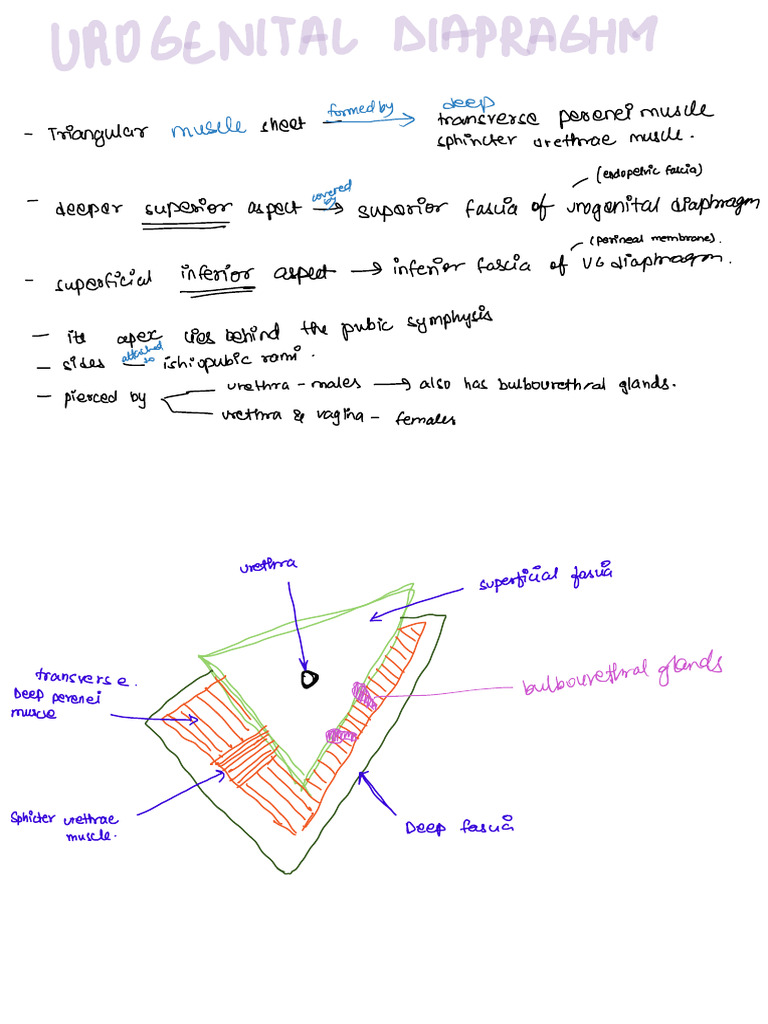 UROGENITAL DIAPRAGHM
- Triangular muscle sheet formed by → deep transverse perenei muscle
sphincter urethrae muscle.
- deeper superior aspect covered by → superior fascia of urogenital diaphragm (endopelvic fascia)
- superficial inferior aspect → inferior fascia of UG diaphragm. (perineal membrane).
- its apex lies behind the pubic symphysis
- sides attached to ishiopubic rami.
- pierced by urethra - males → also has bulbourethral glands.
urethra & vagina - females
urethra
superficial fascia
transverse.
Deep perenei
muscle
bulbourethral glands
Sphicter urethrae
muscle.
Deep fascia